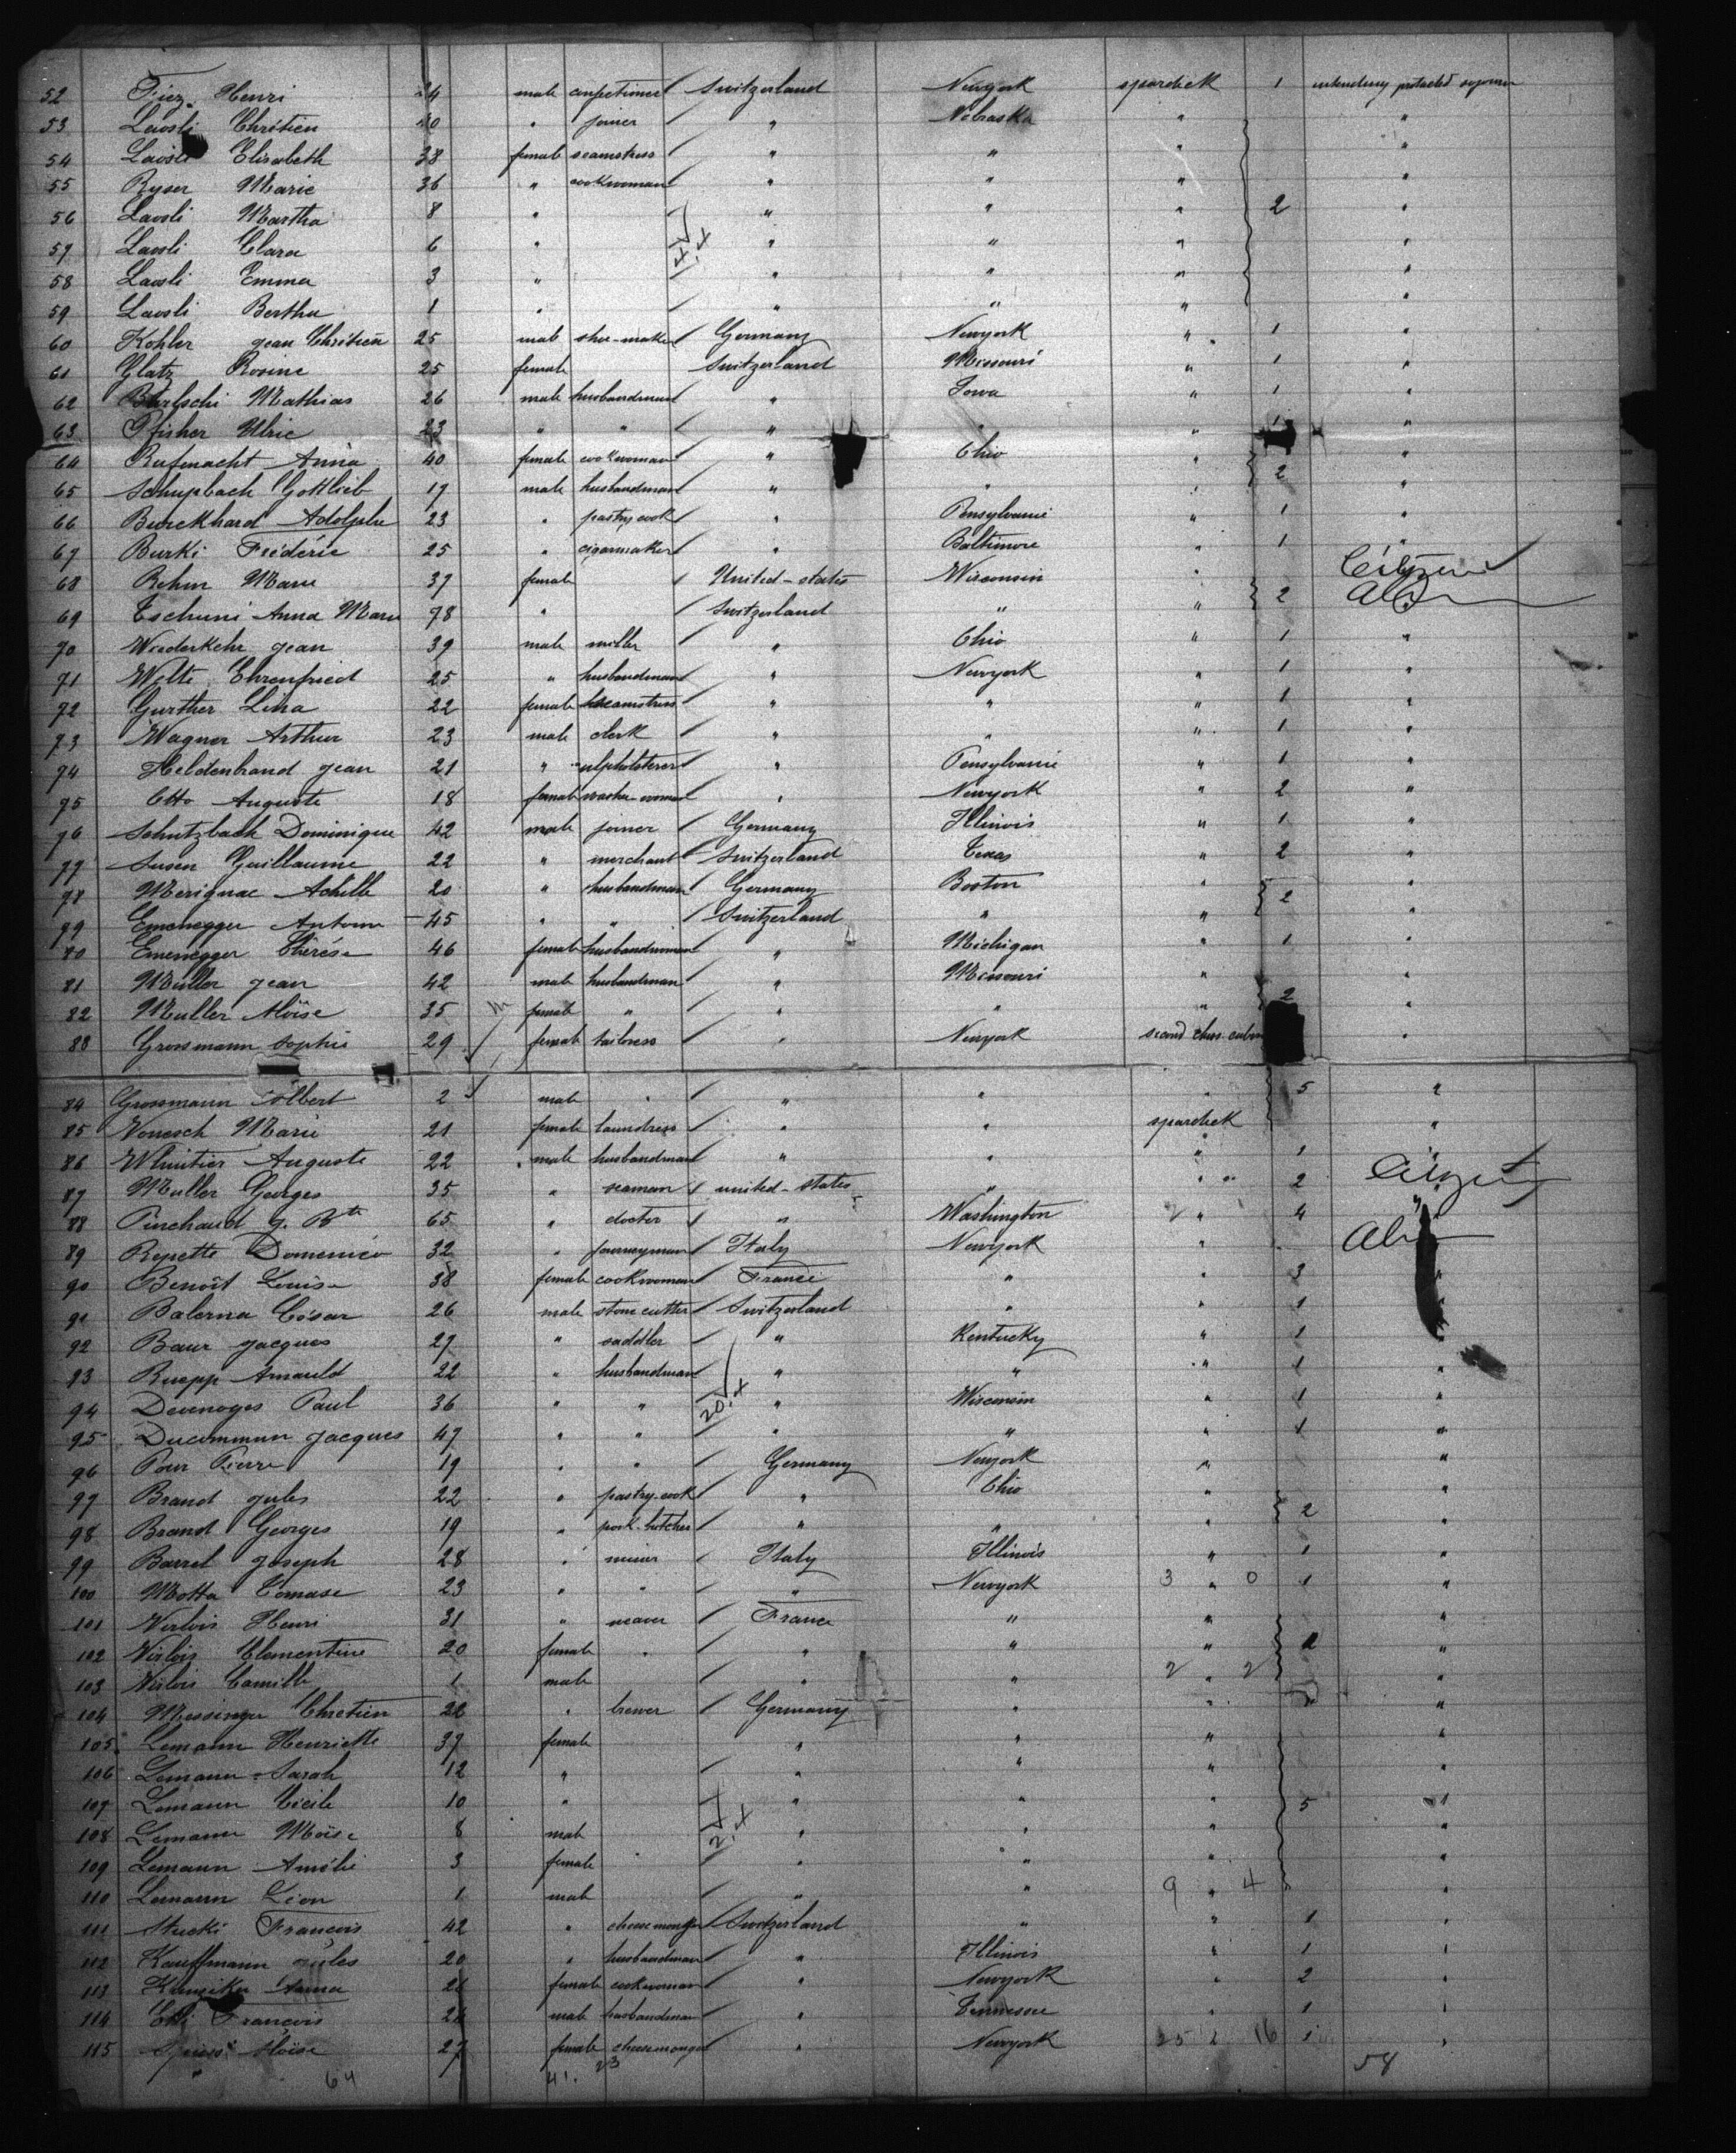 52 Fiez Henri 24 male confectioner Switzerland Newyork spardeck 1 intending protacted sojourn
53 Lavsli Chrétien 40 " joiner " Nebraska " "
54 Lavsli Elisabeth 38 female seamstress " " " "
55 Ryser Marie 36 " cookwoman " " " "
56 Lavsli Martha 8 " " " " 2 "
57 Lavsli Clara 6 " " " " "
58 Lavsli Emma 3 " " " " "
59 Lavsli Bertha 1 " " " " "
60 Kohler jean Chrétien 25 male shoe-maker Germany Newyork " 1 "
61 Glatz Rosine 25 female Switzerland Missouri " 1 "
62 Mathias 26 male husbandman " Iowa " 1 "
63 Pfisher Ulric 23 " " " " " 1 "
64 Rufenacht Anna 40 female cookwoman " Ohio " "
65 Schupbach Gottlieb 17 male husbandman " " " 2 "
66 Burckhard Adolphe 23 " pastry cook " Pensylvanie " 1 "
67 Burki Fréderic 25 " cigarmaker " Baltimore " 1 "
68 Rehm Marie 37 female United-states Wisconsin " Citizen
69 Tschumi Anna Marie 78 " Switzerland " " 2
70 Wiederkehr jean 39 male miller " Ohio " 1 "
71 Welte Ehrenfried 25 " husbandman " Newyork " 1 "
72 Gurther Lina 22 female seamstress " " " 1 "
73 Wagner Arthur 23 male clerk " " " 1 "
74 Heldenbrand jean 21 " upholsterer " Pensylvanie " 1 "
75 Otto Auguste 18 female washer-woman " Newyork " 2 "
76 Schutzbach Dominique 42 male joiner Germany Illinois " 1 "
77 Susen Guillaume 22 " merchant Switzerland Texas " 2 "
78 Merignac Achille 20 " husbandman Germany Boston " 2 "
79 Emenegger Antoine 45 " " Switzerland " " "
80 Emenegger Thérése 46 female husbandwoman " Michigan " 1 "
81 Muller jean 42 male husbandman " Missouri " "
82 Muller Aloïse 35 female " " " " 2 "
83 Grossmann Sophie 29 female tailoress " Newyork second class cabin "
84 Grossmann 2 male " " " " 5 "
85 Vonesch Marie 21 female laundress " " spardeck "
86 Auguste 22 male husbandman " " " 1 "
87 Muller Georges 35 " seaman united-states " " 2 Citizen
88 65 " doctor " Washington " 4 "
89 Repette Domenico 32 " journeyman Italy Newyork "
90 Benoît Louise 38 female cookwoman France " " 3 "
91 Balerna César 26 male stone cutter Switzerland " " 1 "
92 Baur jacques 27 " saddler " Kentucky " 1 "
93 Ruepp Arnauld 22 " husbandman " " " 1 "
94 Devenoges Paul 36 " " " Wisconsin " 1 "
95 Ducommun jacques 47 " " " " " 1 "
96 Pierre 19 " " Germany Newyork " "
97 Brand jules 22 " pastry-cook " Ohio " "
98 Brand Georges 19 " pork-butcher " " " 2 "
99 Barrel joseph 28 " miner Italy Illinois " 1 "
100 Motta Tomase 23 " " " Newyork 3 " 0 1 "
101 Virlois Henri 31 " weaver France " " "
102 Virlois Clementine 20 female " " " " 2 "
103 Virlois Camille 1 male " " 2 " 2 "
104 Messinger Chretien 22 " brewer Germany " " " "
105 Lemann Henriette 37 female " " " "
106 Lemann Sarah 12 " " " " "
107 Lemann Cécile 10 " " " " 5 "
108 Lemann Moïse 8 male " " " "
109 Lemann Amélie 3 female " " " "
110 Lemann Léon 1 male " " 9 " 4 "
111 Stucki François 42 " cheesemonger Switzerland " " 1 "
112 Kauffmann jules 20 " husbandman " Illinois " 1 "
113 Anna 26 female cookwoman " Newyork " 2 "
114 François 26 male husbandman " Tennessee " 1 "
115 Aloïse 27 female cheesemonger " Newyork 25 2 16 1 "
64 41. 23 58